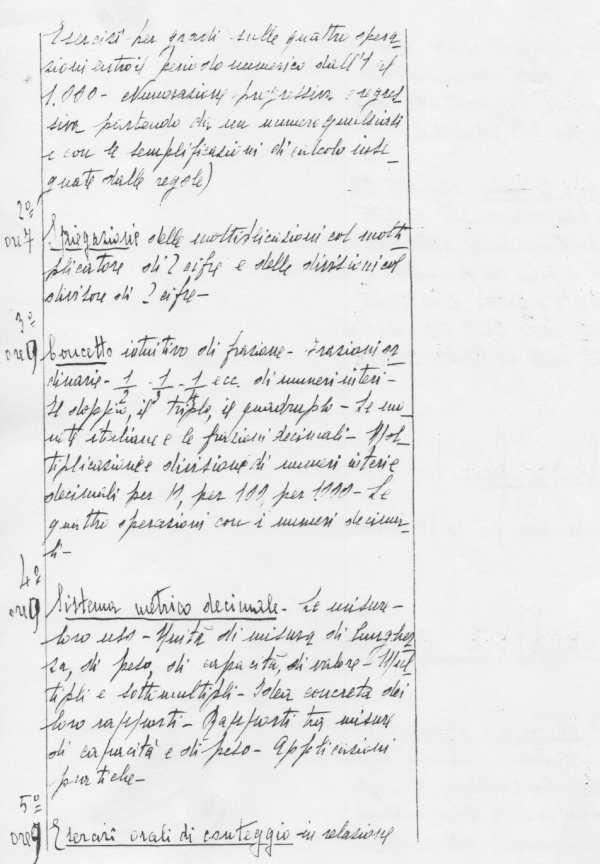 Esercizi per gradi sulle quattro opera-
zioni entro il periodo numerico dall'1 al
1.000 - Numerazione progressiva e regres
siva partendo da un numero qualsiasi
e con le semplificazioni di calcolo inse-
gnate dalle regole)
2º
ore 7 Spiegazione delle moltiplicazioni col molti
plicatore di 2 cifre e delle divisioni col
divisore di 2 cifre -
3º
ore 9 Concetto intuitivo di frazione - Frazioni or
dinarie - 1/2 - 1/3 - 1/4 ecc. di numeri interi -
Il doppio, il triplo, il quadruplo - Le mo-
nete italiane e le frazioni decimali - Mol-
tiplicazione e divisione di numeri interi e
decimali per 10, per 100, per 1000 - Le
quattro operazioni con i numeri decima-
li -
4º
ore 9 Sistema metrico decimale - Le misure -
loro uso - Unità di misura di lunghez
za, di peso, di capacità, di valore - Mul
tipli e sottomultipli - Idea concreta dei
loro rapporti - Rapporti tra misure
di capacità e di peso - Applicazioni
pratiche -
5º
ore 9 Esercizi orali di conteggio in relazione